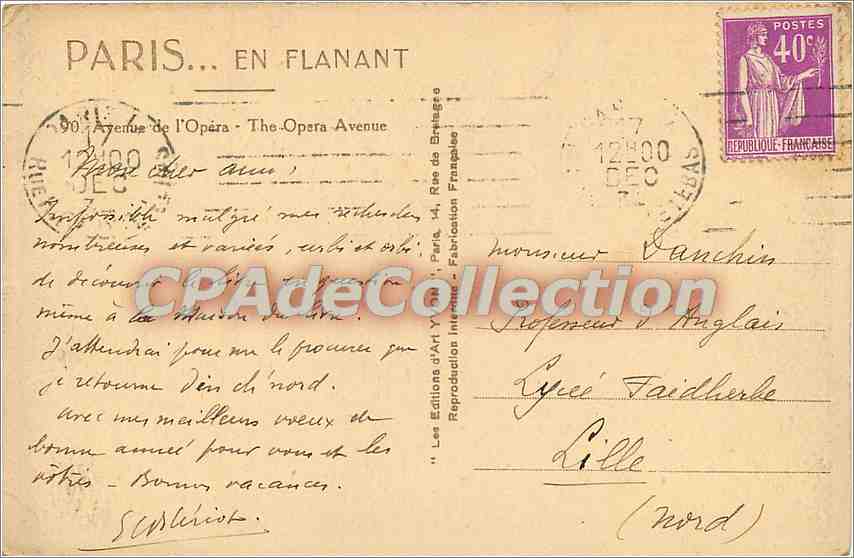 PARIS... EN FLANANT
90. Avenue de l'Opéra - The Opera Avenue
Mon cher ami,
Impossible malgré mes recherches
nombreuses et variées, urbi et orbi
de découvrir le livre en question
même à la Maison du livre.
J'attendrai pour me le procurer que
je retourne d'en ch'nord.
Avec mes meilleurs voeux de
bonne année pour vous et les
vôtres - Bonnes vacances.
" Les Editions d'Art YVON ", Paris, 14, Rue de Bretagne
Reproduction Interdite - Fabrication Française
POSTES
40c
REPUBLIQUE-FRANÇAISE
12H00
DEC
RUE
17
12H00
DEC
Monsieur Danchin
Professeur d'Anglais
Lycée Faidherbe
Lille
(Nord)
CPAdeCollection.com